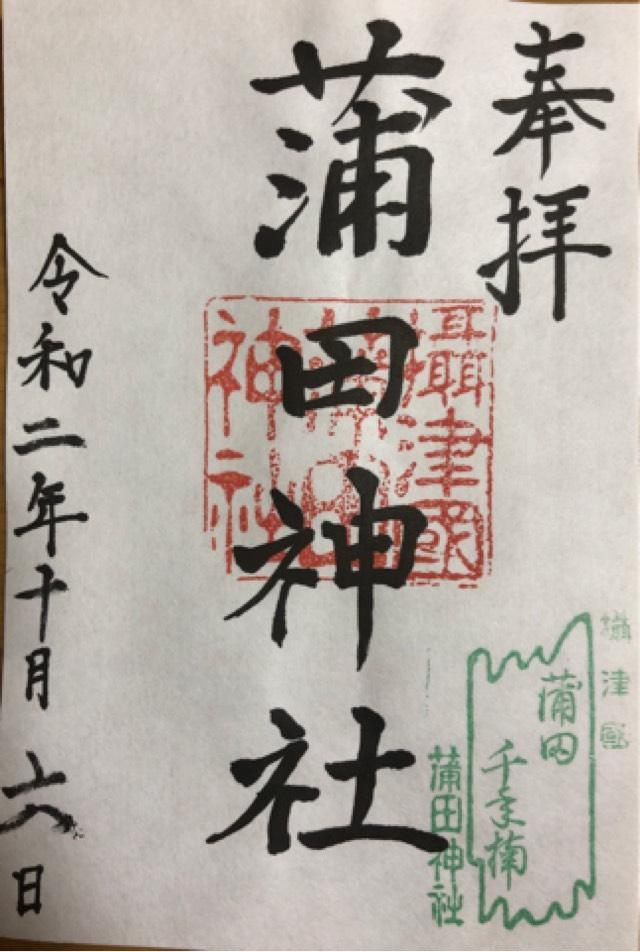 奉拝
攝津國
蒲田
千年楠
蒲田神社
蒲田神社
攝津國
蒲田
神社
令和二年十月六日